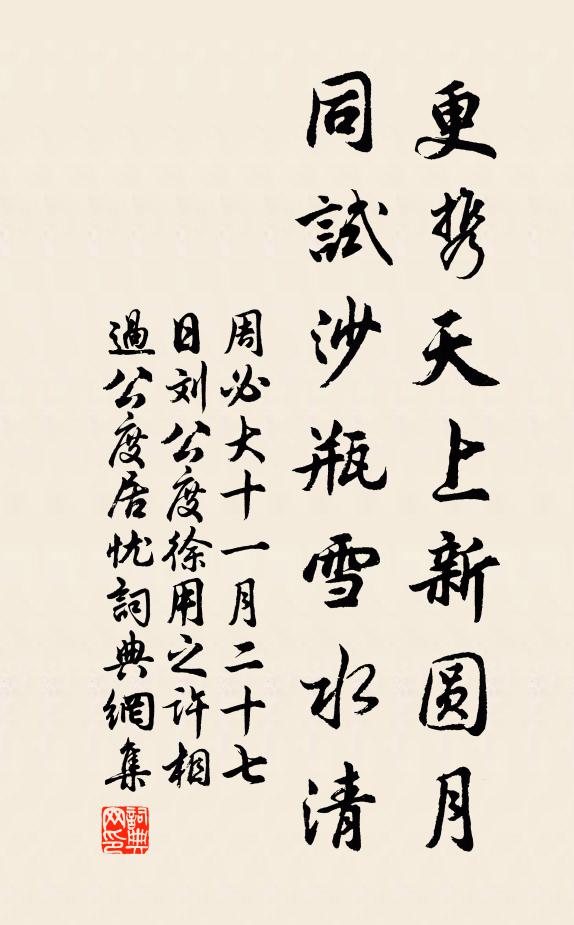 更携天上新圆月
同試沙瓶雪水清
周必大十一月二十七
日刘公度徐用之许相
過公度居忧詞典網集
詞典網印